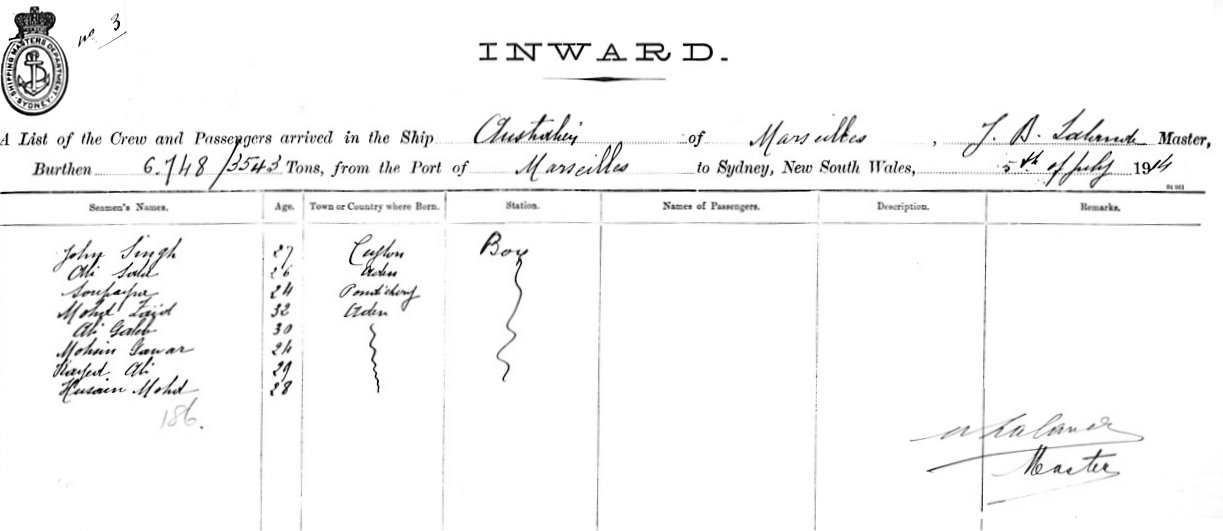 No 3
SHIPPING MASTERS DEPARTMENT SYDNEY
INWARD.
A List of the Crew and Passengers arrived in the Ship Australien of Marseilles, J. B. Master,
Burthen 6.748/3543 Tons, from the Port of Marseilles to Sydney, New South Wales, 5th of July 1914
Seamen's Names. Age. Town or Country where Born. Station. Names of Passengers. Description. Remarks.
John Singh 27 Ceylon Boy
Ali Said 26 Aden
Soupaya 24 Pondichery
Mohd Zaid 32 Aden
Ali Galeb 30
Mohsin 24
Sayed Ali 29
Husain Mohd 28
186.
Lalande
Master